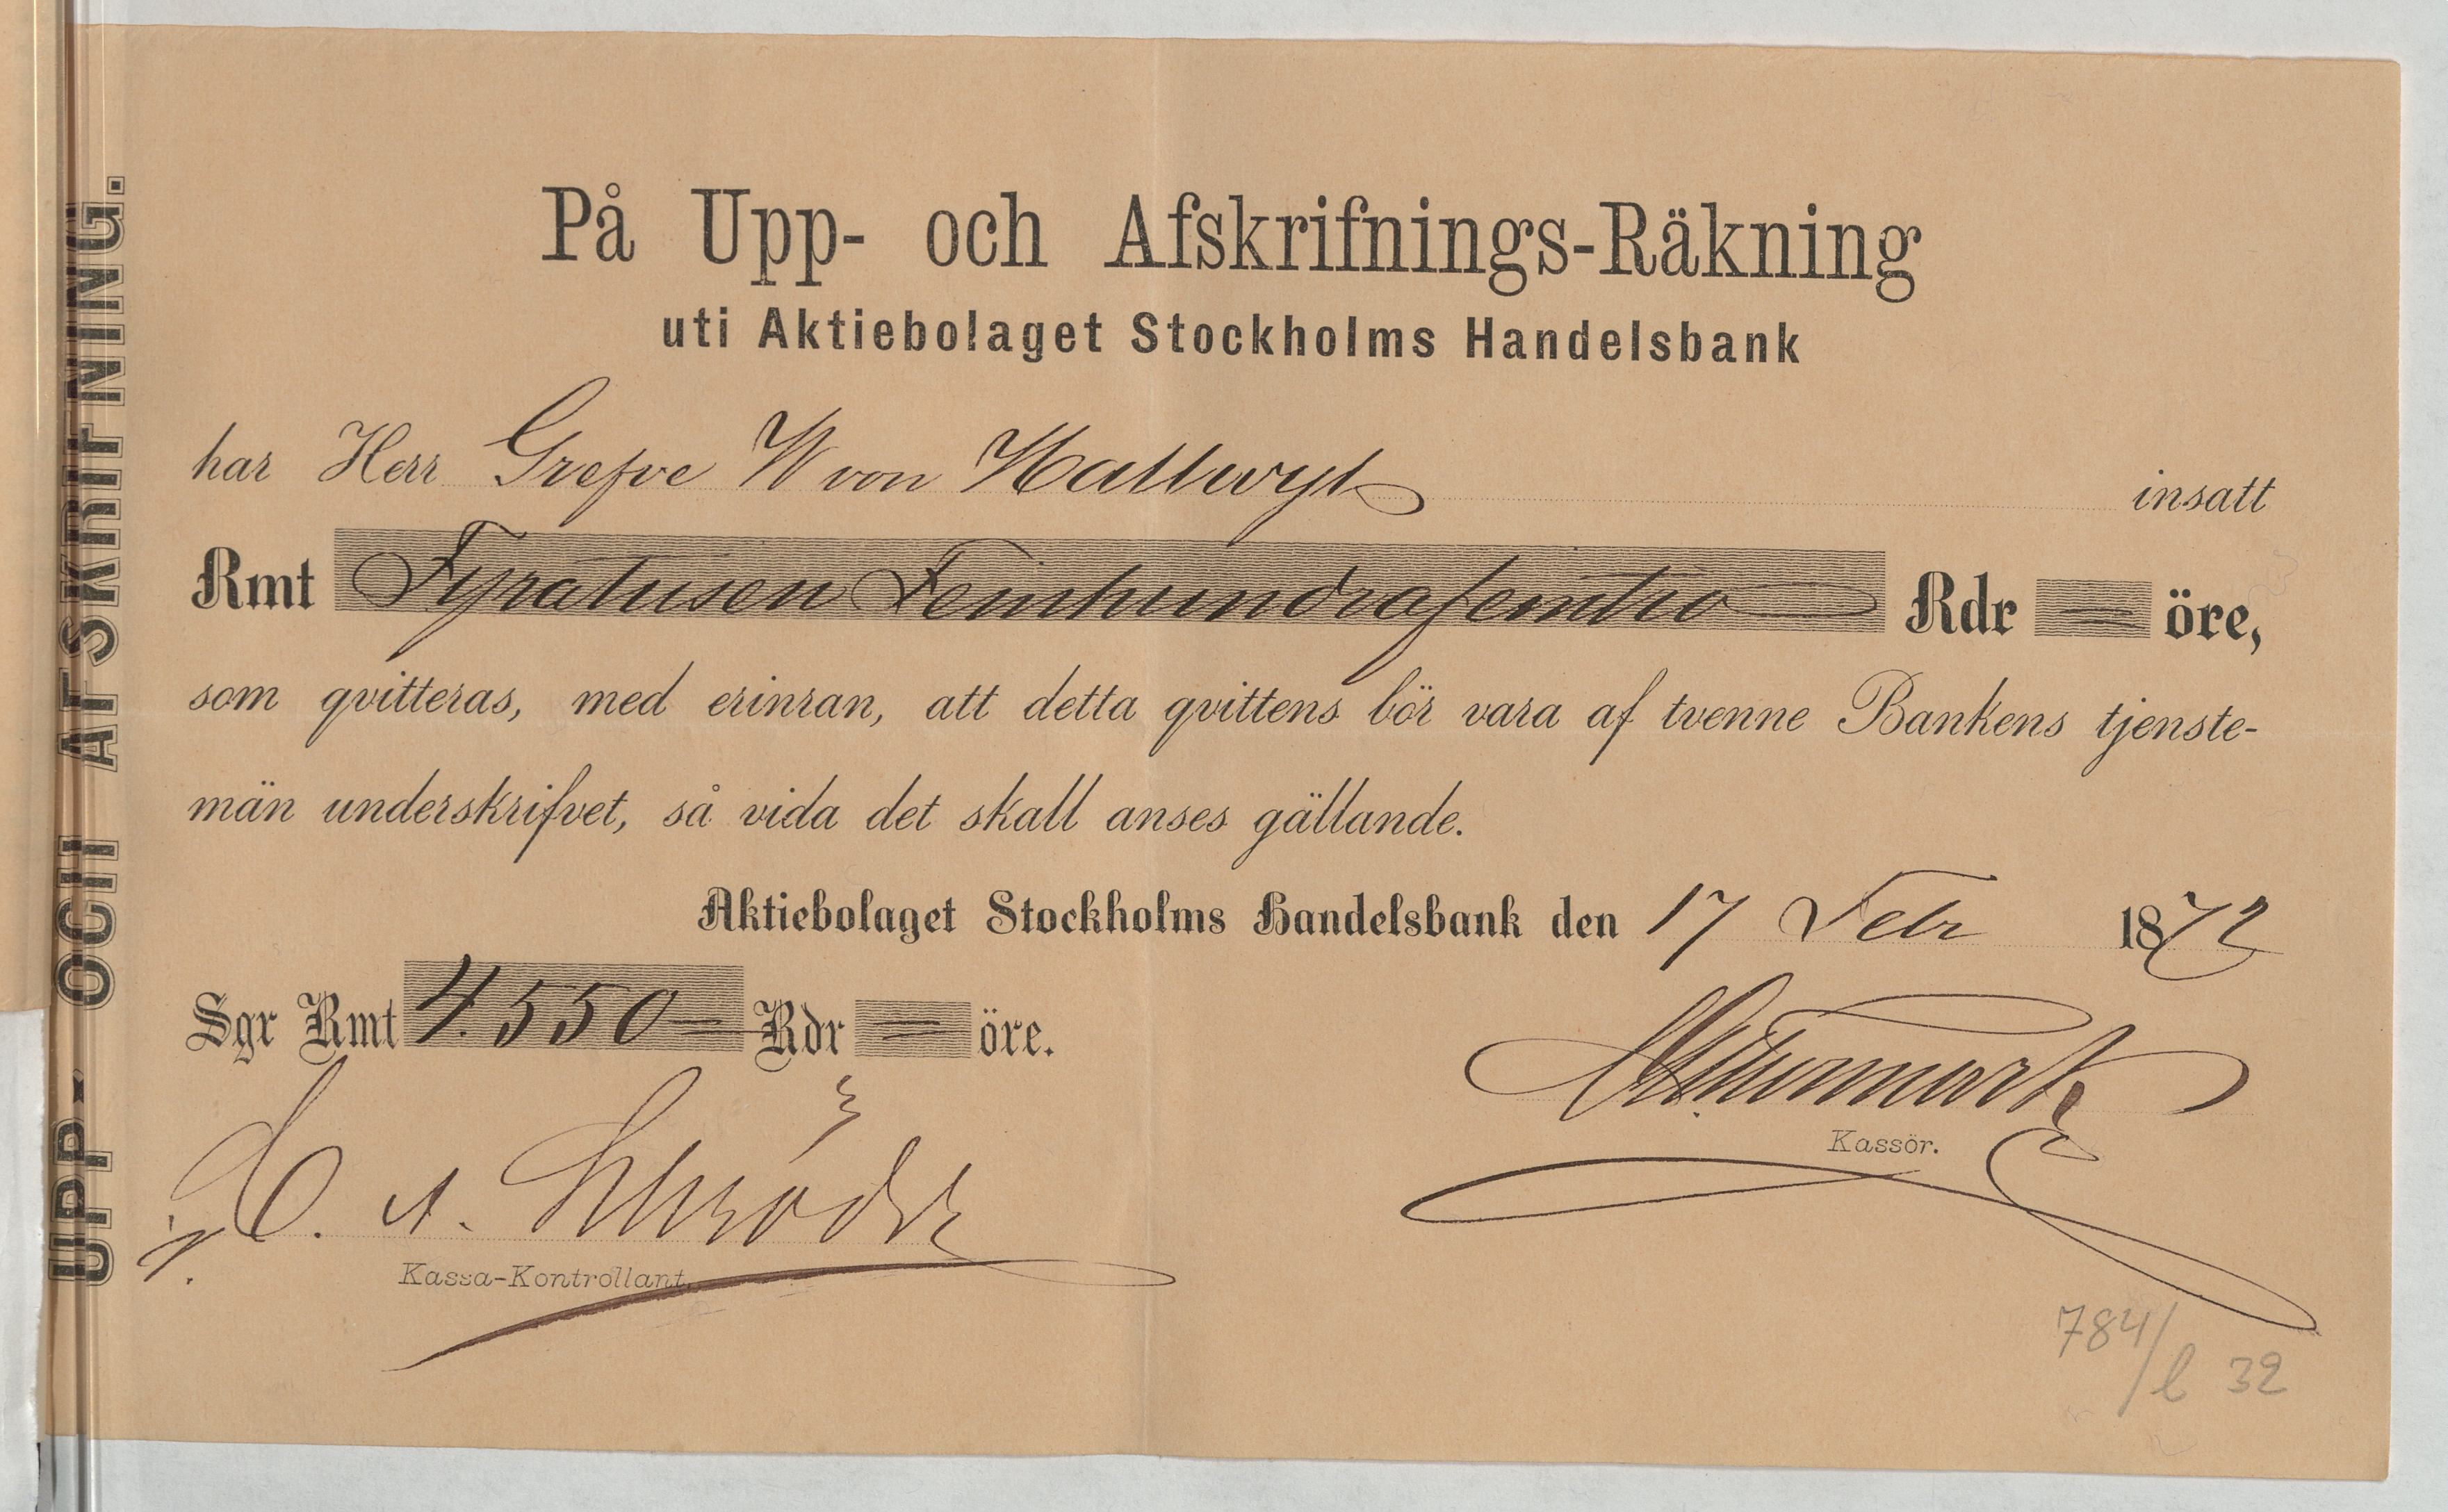 UPP- OCH AFSKRIFNING.
På Upp- och Afskrifnings-Räkning
uti Aktiebolaget Stockholms Handelsbank
har Herr Grefve W von Hallwyl insatt
Rmt Fyratusen Femhundrafemtio Rdr — öre,
som qvitteras, med erinran, att detta qvittens bör vara af tvenne Bankens tjenste-
män underskrifvet, så vida det skall anses gällande.
Aktiebolaget Stockholms Handelsbank den 17 Febr 1872
Sgr Rmt 4.550 — Rdr — öre.
C. A. Schröder
Kassör.
Kassa-Kontrollant.
784/l 32